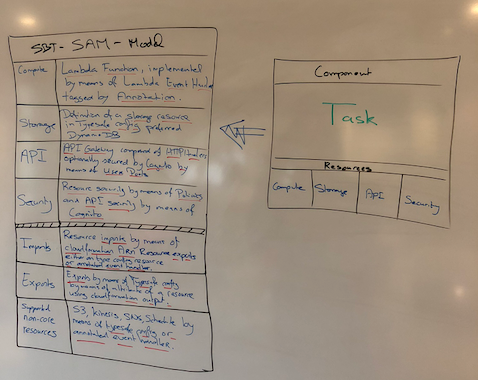 SBT - SAM - Model
Compute
Lambda Function, implemented
by means of Lambda Event Handler
tagged by Annotation.
Storage
Definition of a storage resource
in Typesafe config, preferred
DynamoDB
API
API Gateway composed of HTTP
optionally secured by Cognito by
means of User Pools
Security
Resource security by means of Policies
and API security by means of
Cognito
Imports
Resource imports by means of
cloudformation Arn Resource exports
either on type config resource
or annotated event handler.
Exports
Exports by means of Typesafe config
by means of attribute of a resource
using cloudformation output.
Supported
non-core
resources
S3, Kinesis, SNS, Schedule by
means of typesafe config or
annotated event handler.
Component
Task
Resources
Compute
Storage
API
Security